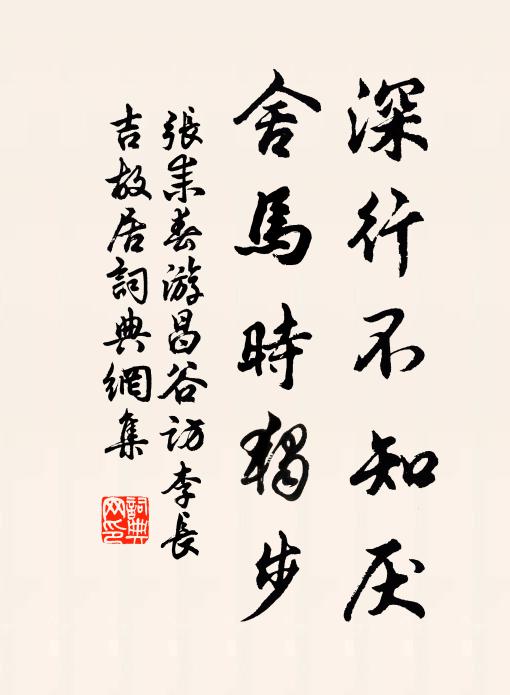 深行不知厌
舍馬時獨步
張耒春游昌谷访李長
吉故居詞典網集
詞典
网印